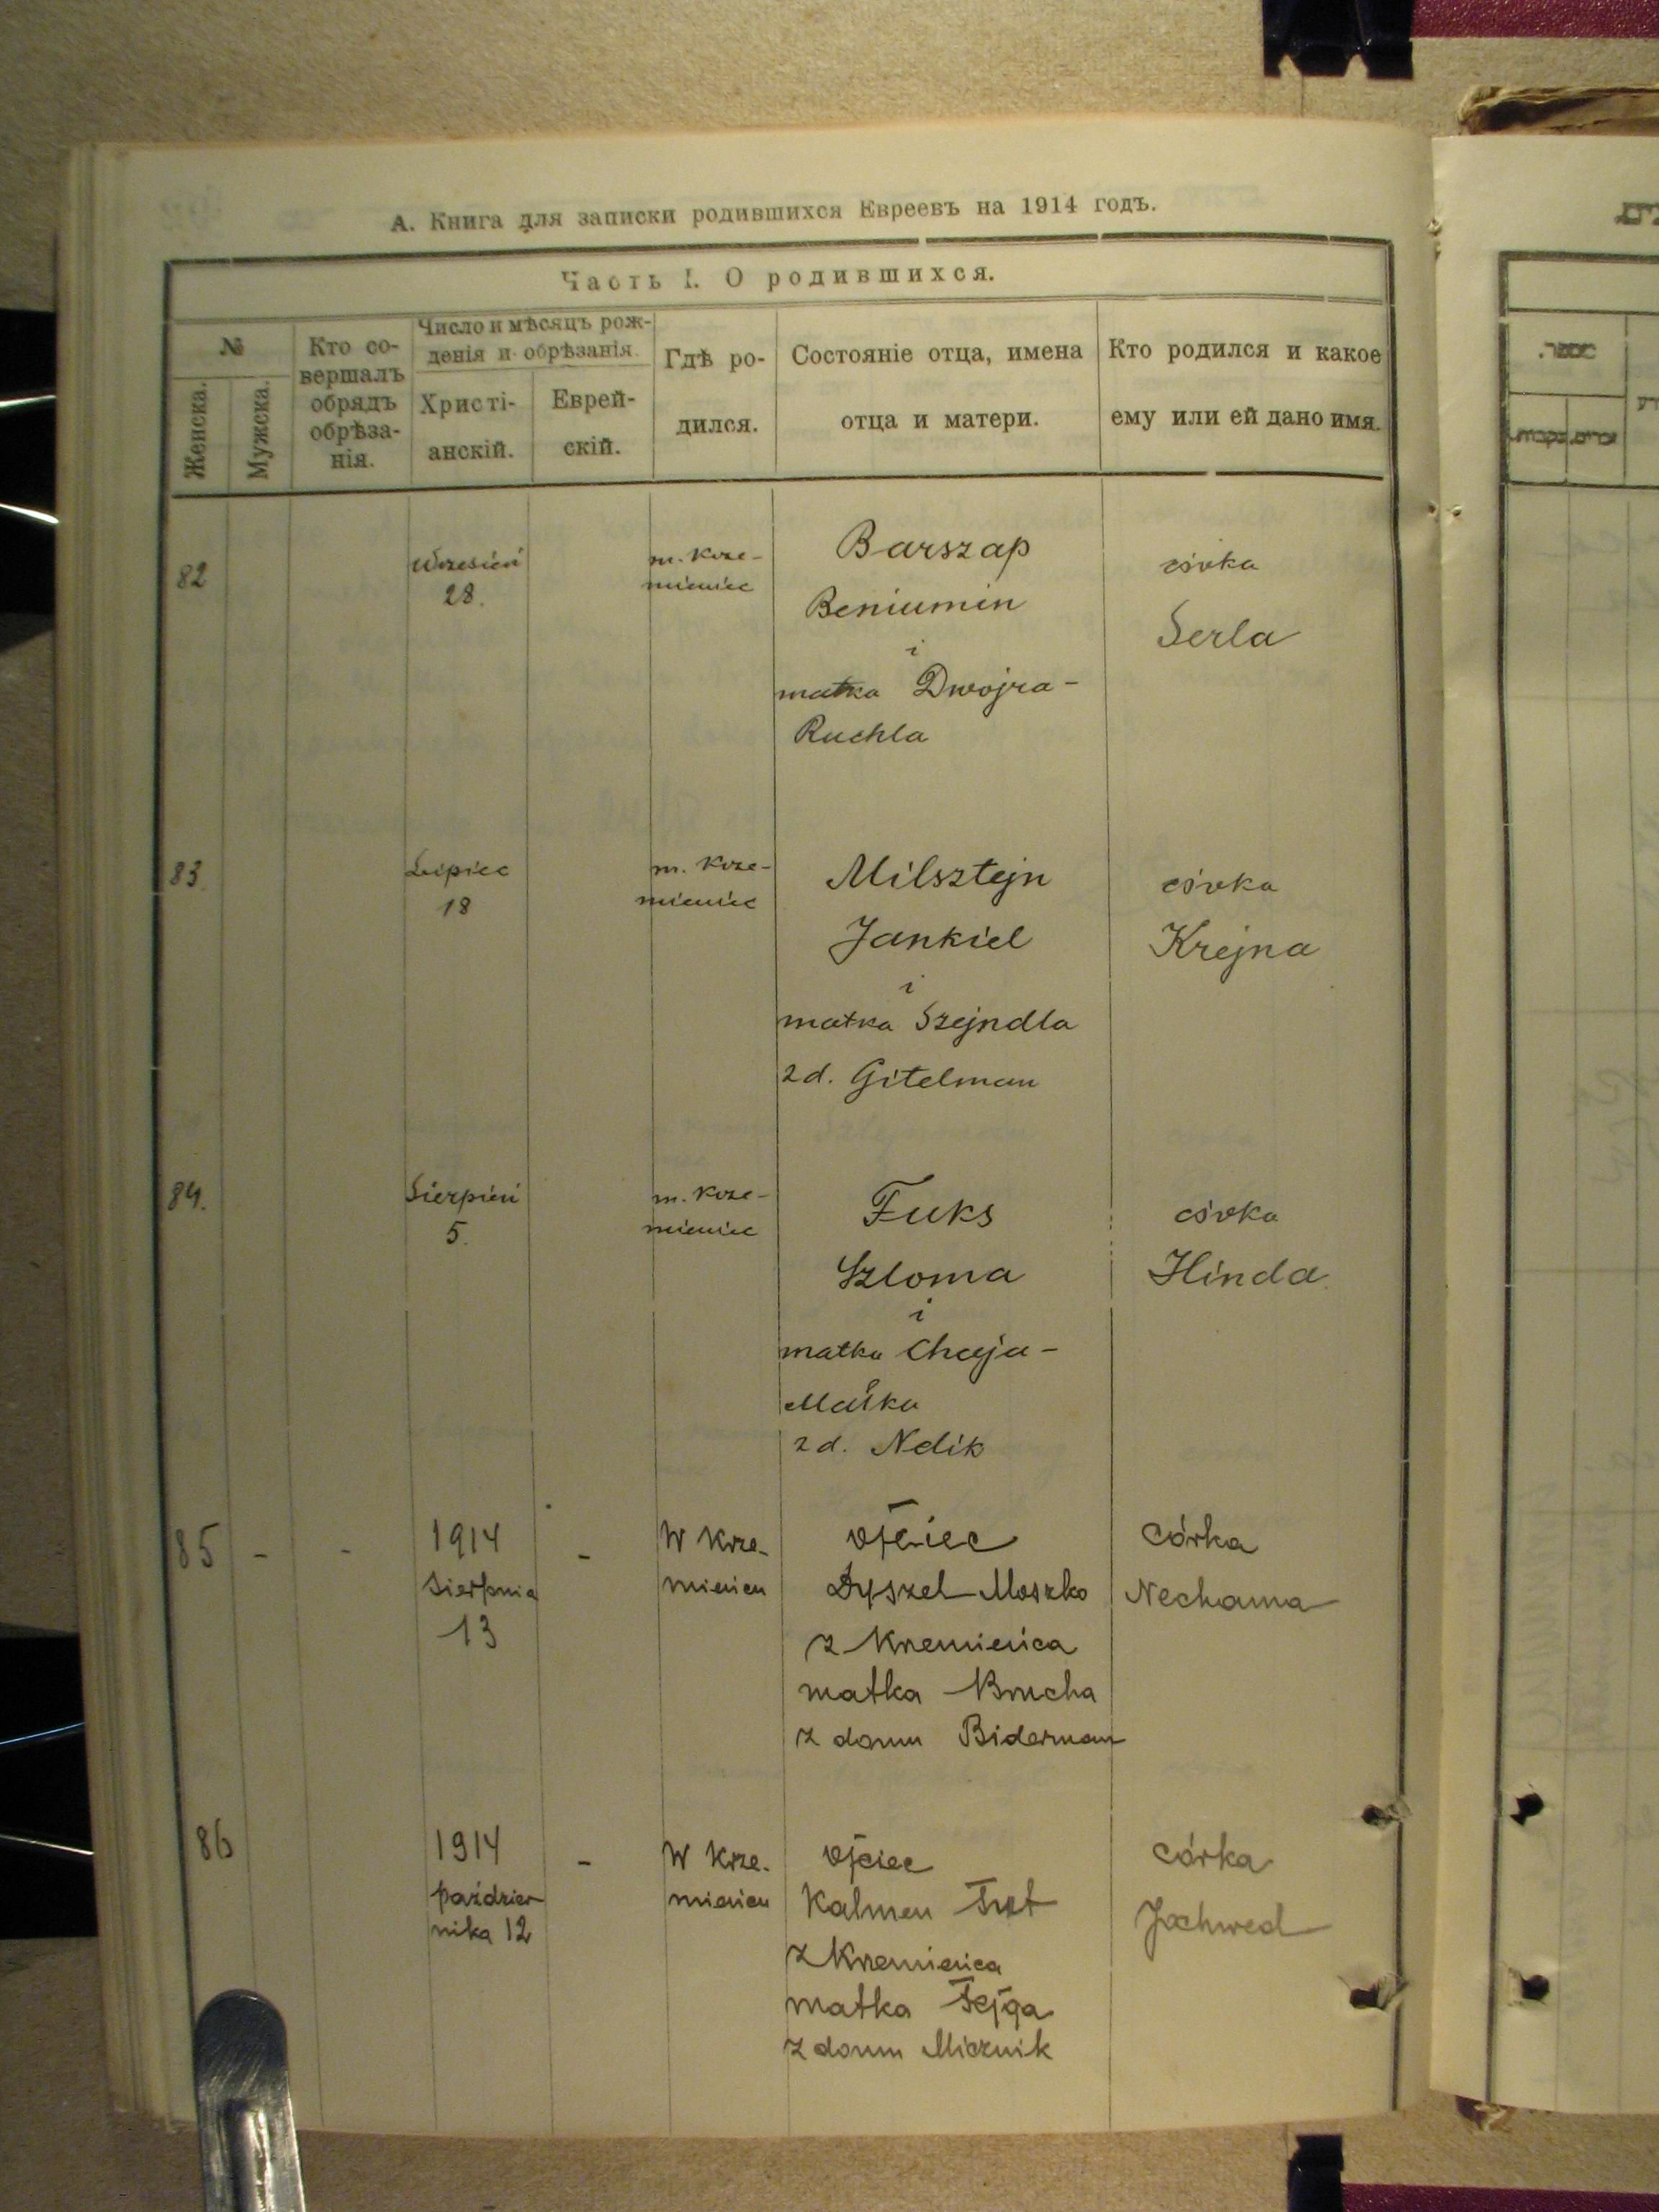 А. Книга для записки родившихся Евреевъ на 1914 годъ.
Часть I. О родившихся.
№
Женска.
Мужска.
Кто со-
вершалъ
обрядъ
обрѣза-
нія.
Число и мѣсяцъ рож-
денія и обрѣзанія.
Христі-
анскій.
Еврей-
скій.
Гдѣ ро-
дился.
Состояніе отца, имена
отца и матери.
Кто родился и какое
ему или ей дано имя.
82
Wrzesień
28.
m. Krze-
mieniec
Barszap
Beniumin
i
matka Dwojra-
Ruchla
córka
Serla
83.
Lipiec
18
m. Krze-
mieniec
Milsztejn
Jankiel
i
matka Szejndla
z d. Gitelman
córka
Krejna
84.
Sierpień
5.
m. Krze-
mieniec
Fuks
Szloma
i
matka Chaja-
z d. Nelik
córka
Hinda
85 - -
1914
Sierpnia
13
-
W Krze-
mieńcu
ojciec
Dyszel Moszko
z Krzemieńca
matka Brucha
z domu Biderman
córka
Nechama
86
1914
paździer
nika 12
-
W Krze-
mieńcu
ojciec
Kalmen
z Krzemieńca
matka Fejga
z domu Micznik
córka
Jochwed